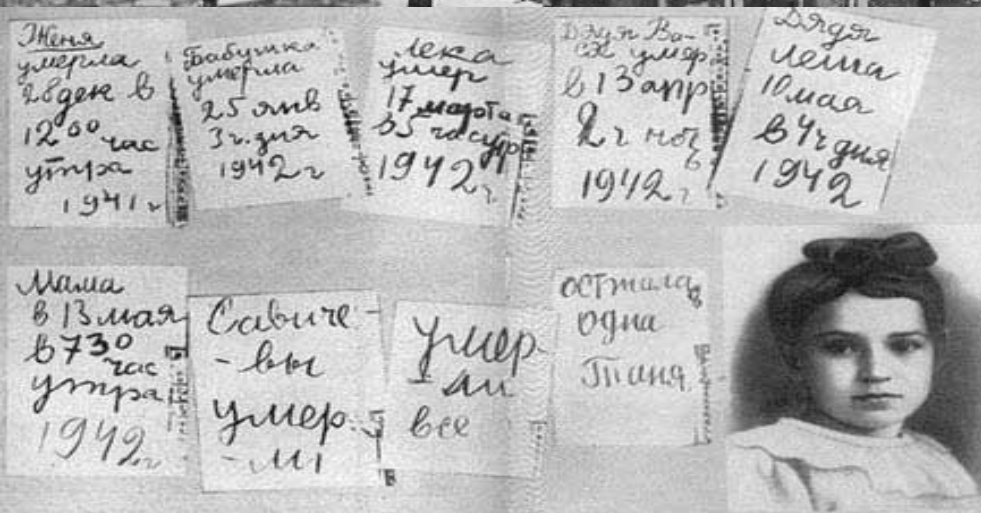 Женя
умерла
28 дек в
12 00 час
утра
1941 г
Бабушка
умерла
25 янв
3 ч. дня
1942 г
Лека
умер
17 марта
в 5 час утр
1942 г
Дядя Ва-
ся умер
в 13 апр
2 ч ноч
1942 г
Дядя
Леша
10 мая
в 4 ч дня
1942
Мама
в 13 мая
в 730
час
утра
1942 г
Савиче-
-вы
умер-
-ли
умер-
-ли
все
осталась
одна
Таня